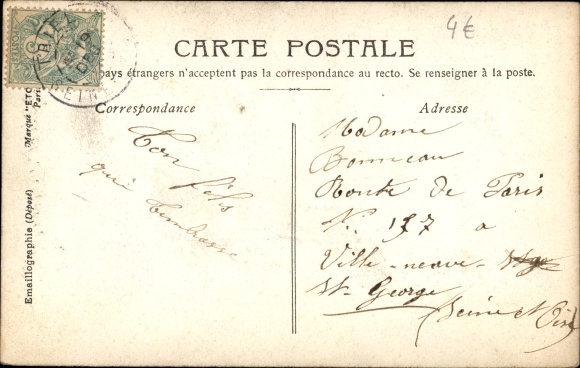 4€
CARTE POSTALE
pays étrangers n'acceptent pas la correspondance au recto. Se renseigner à la poste.
Correspondance
Ton fils
qui t'embrasse
Adresse
Madame
Bonneau
Route de Paris
N. 157 a
Ville-neuve-
St George
(Seine et Oise)
Emaillographie (Déposé)
Marque "ÉTO
Paris